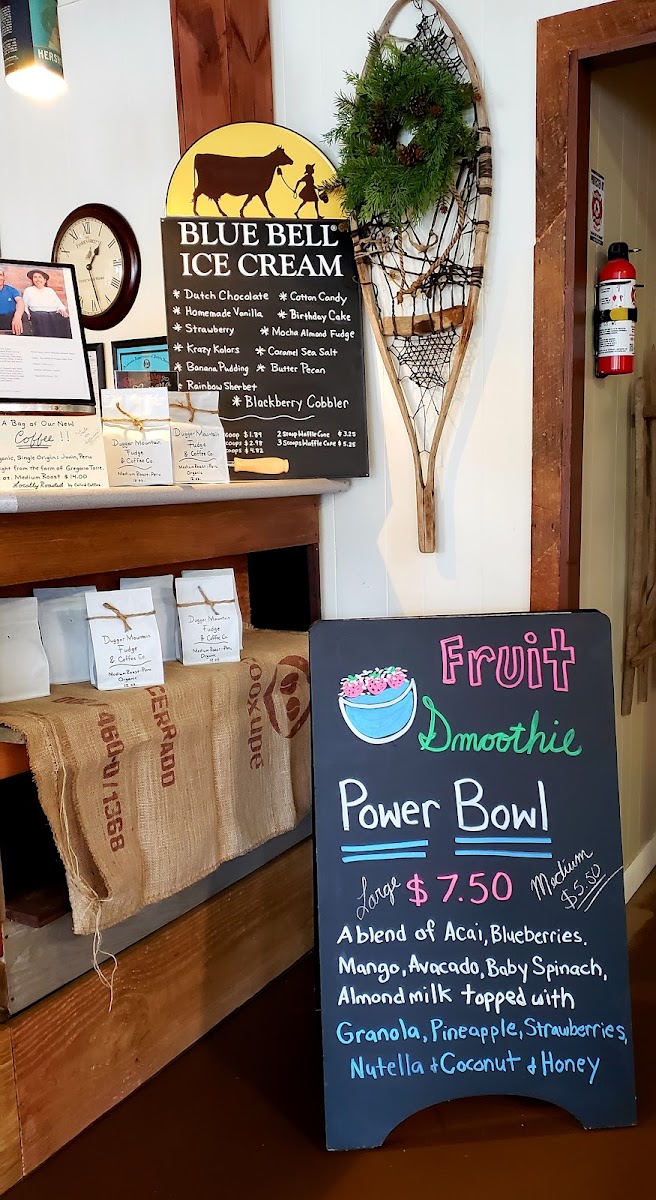 HERS
BLUE BELL®
ICE CREAM
* Dutch Chocolate * Cotton Candy
* Homemade Vanilla * Birthday Cake
* Strawberry * Mocha Almond Fudge
* Krazy Kolors * Caramel Sea Salt
* Banana Pudding * Butter Pecan
Rainbow Sherbet
* Blackberry Cobbler
scoop $1.89 2 Scoop Waffle Cone $3.25
scoops $2.98 3 Scoops Waffle Cone $5.25
scoops $4.82
A Bag of Our New
Coffee!!
ganic, Single Origin: Junin, Peru
ght from the farm of Gregorio Torre.
oz. Medium Roast $14.00
Locally Roasted by
Dugger Mountain
Fudge
& Coffee Co.
Medium Roast-Peru
Organic
12 oz.
Dugger Mountain
Fudge
& Coffee Co.
Medium Roast-Peru
Organic
12 oz.
Dugger Mountain
Fudge
& Coffee Co.
Medium Roast-Peru
Organic
12 oz.
Dugger Mountain
Fudge
& Coffee Co.
Medium Roast-Peru
Organic
12 oz.
460-0/1368
CERRADO
OOXUPÉ
Fruit
Smoothie
Power Bowl
Large $7.50 Medium $5.50
A blend of Acai, Blueberries,
Mango, Avacado, Baby Spinach,
Almond milk topped with
Granola, Pineapple, Strawberries,
Nutella & Coconut & Honey